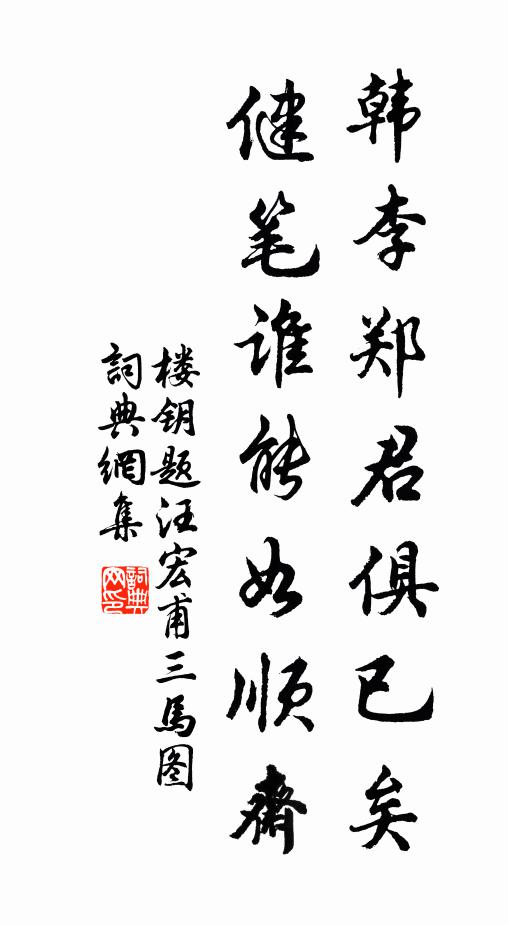 韩李郑君俱已矣
健笔谁能如顺斋
楼钥题汪宏甫三馬图
詞典網集
詞典网印